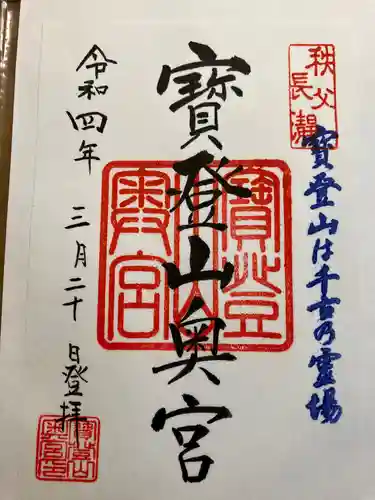 秩父
長瀞
寶登山は千古乃霊場
寶登山奥宮
寶登山
奥宮
令和四年
三月二十日登拝